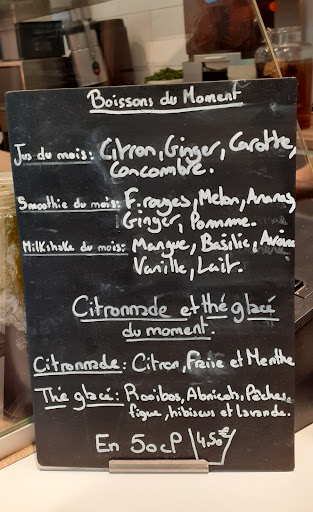 Boissons du Moment
Jus du mois: Citron, Ginger, Carotte,
Concombre.
Smoothie du mois: F. rouges, Melon, Ananas,
Ginger, Pomme.
Milkshake du mois: Mangue, Basilic, Avoine
Vanille, Lait.
Citronnade et thé glacé
du moment.
Citronnade: Citron, Fraise et Menthe
Thé glacé: Rooibos, Abricots, Pêches
figue, hibiscus et lavande.
En 50cl 4.50€